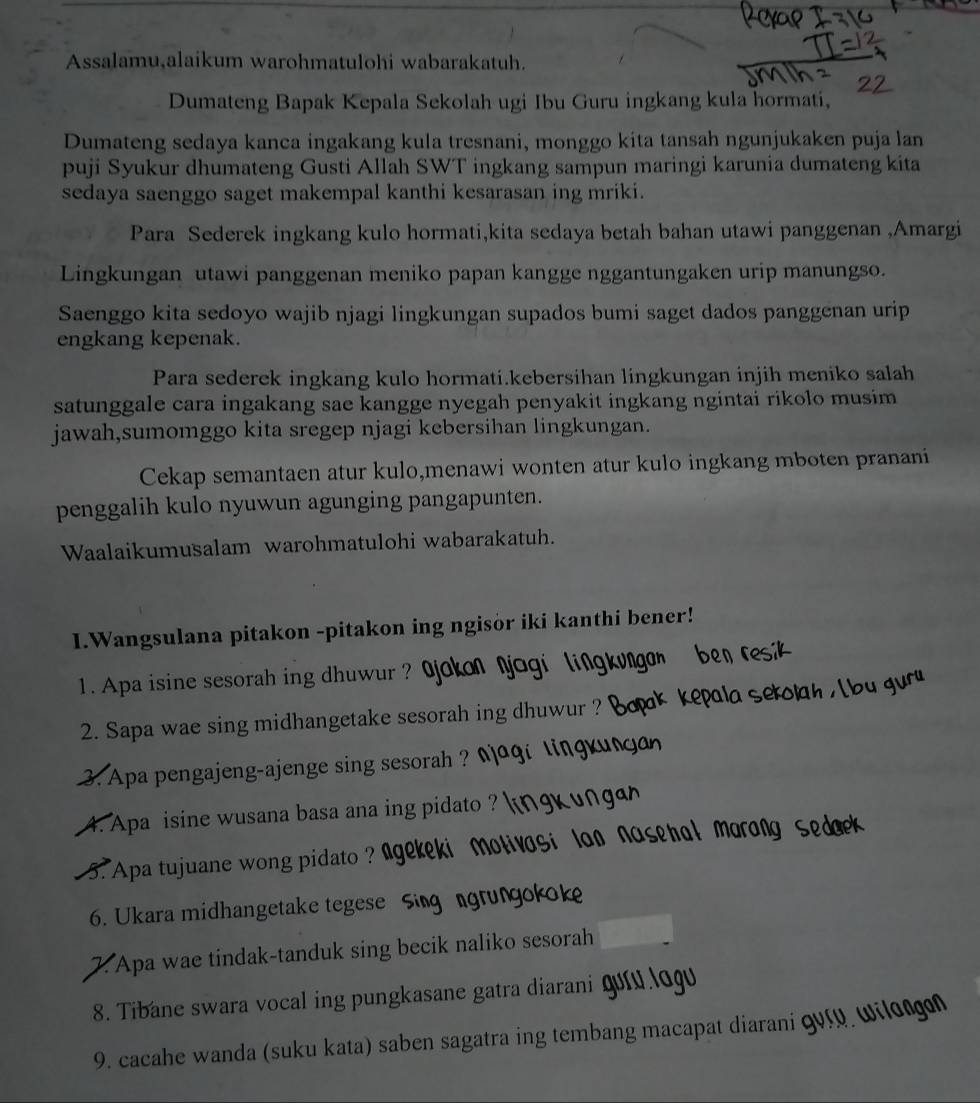 Rekap I = 10
II = 12
Jmlh = 22
Assalamu,alaikum warohmatulohi wabarakatuh.
Dumateng Bapak Kepala Sekolah ugi Ibu Guru ingkang kula hormati,
Dumateng sedaya kanca ingakang kula tresnani, monggo kita tansah ngunjukaken puja lan
puji Syukur dhumateng Gusti Allah SWT ingkang sampun maringi karunia dumateng kita
sedaya saenggo saget makempal kanthi kesarasan ing mriki.
Para Sederek ingkang kulo hormati,kita sedaya betah bahan utawi panggenan ,Amargi
Lingkungan utawi panggenan meniko papan kangge nggantungaken urip manungso.
Saenggo kita sedoyo wajib njagi lingkungan supados bumi saget dados panggenan urip
engkang kepenak.
Para sederek ingkang kulo hormati.kebersihan lingkungan injih meniko salah
satunggale cara ingakang sae kangge nyegah penyakit ingkang ngintai rikolo musim
jawah,sumomggo kita sregep njagi kebersihan lingkungan.
Cekap semantaen atur kulo,menawi wonten atur kulo ingkang mboten pranani
penggalih kulo nyuwun agunging pangapunten.
Waalaikumusalam warohmatulohi wabarakatuh.
I.Wangsulana pitakon -pitakon ing ngisor iki kanthi bener!
1. Apa isine sesorah ing dhuwur ? Ajakan njagi lingkungan ben resik
2. Sapa wae sing midhangetake sesorah ing dhuwur ? Bapak kepala sekolah, Ibu guru
3. Apa pengajeng-ajenge sing sesorah ? Njagi lingkungan
4. Apa isine wusana basa ana ing pidato ? lingkungan
5. Apa tujuane wong pidato ? Ngekeki motivasi lan nasehat marang sedaek
6. Ukara midhangetake tegese Sing ngrungokake
7. Apa wae tindak-tanduk sing becik naliko sesorah
8. Tibane swara vocal ing pungkasane gatra diarani guru lagu
9. cacahe wanda (suku kata) saben sagatra ing tembang macapat diarani guru wilangan